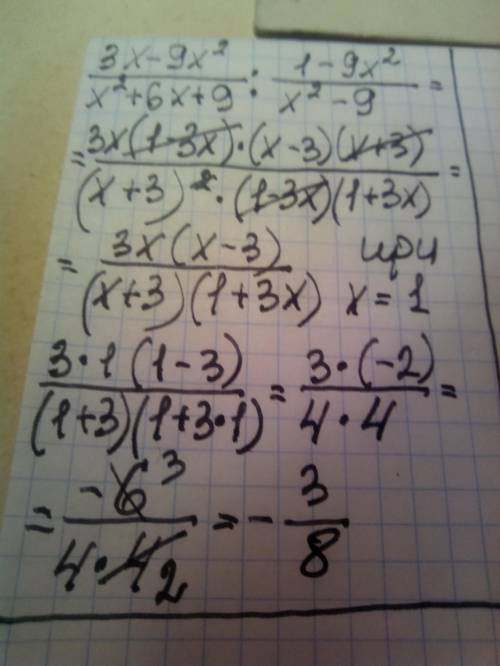 (3x-9x²)/(x²+6x+9) : (1-9x²)/(x²-9) =
= (3x(1-3x)·(x-3)(x+3))/((x+3)²·(1-3x)(1+3x)) =
= (3x(x-3))/((x+3)(1+3x)) при x=1
(3·1(1-3))/((1+3)(1+3·1)) = (3·(-2))/(4·4) =
= (-6 3)/(4·4 2) = - 3/8